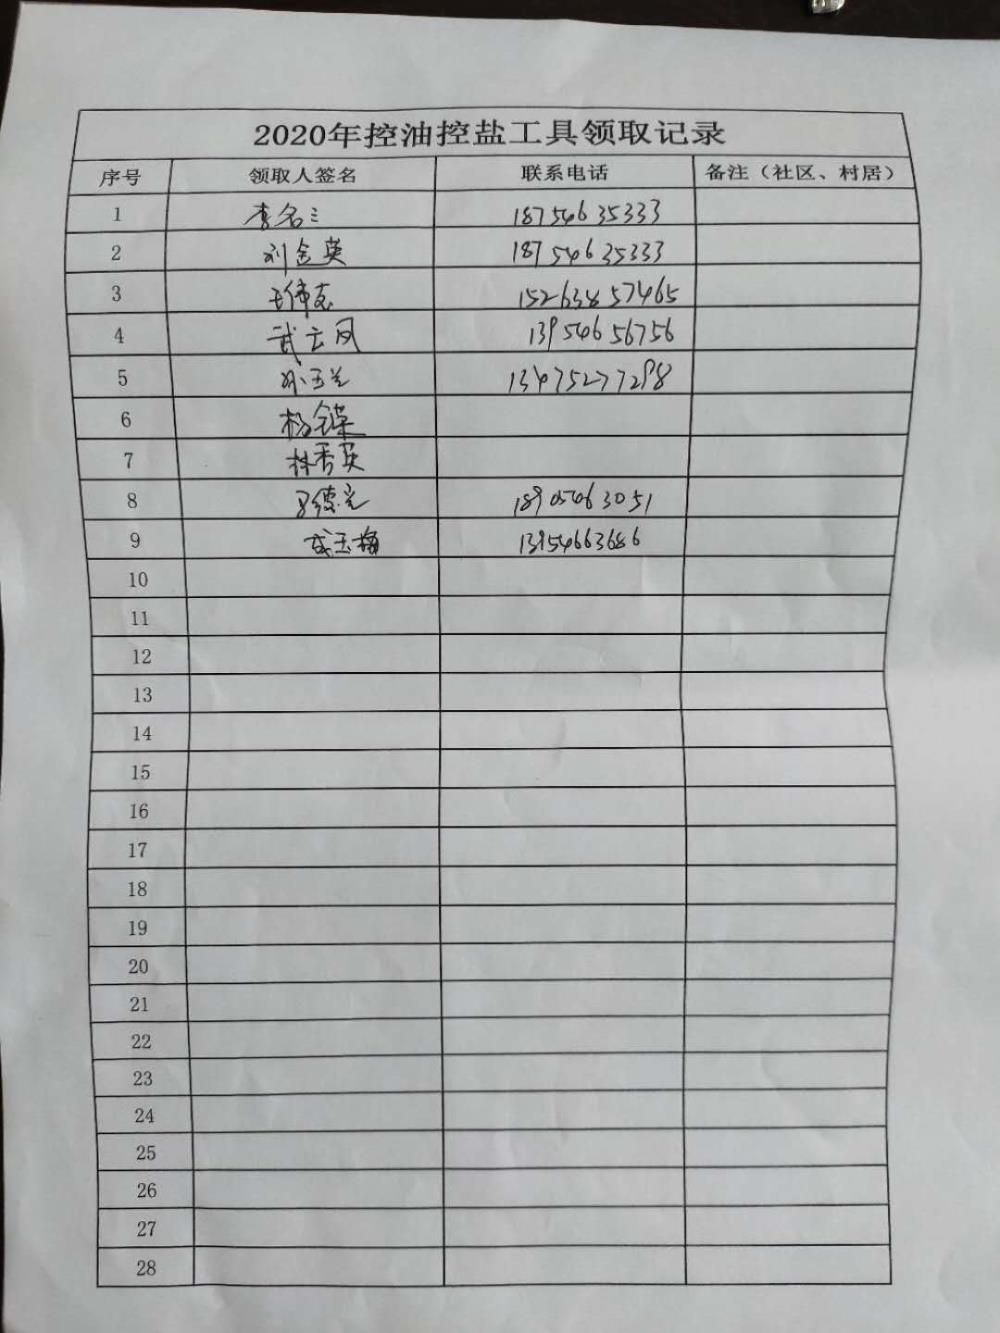 2020年控油控盐工具领取记录
序号 领取人签名 联系电话 备注（社区、村居）
1 李名三 18754635333
2 刘金英 18754635333
3 王伟志 15263857465
4 武云凤 13954656756
5 孙玉兰 13475277298
6 杨
7 林秀英
8 德 18905463051
9 成玉梅 13954663686
10
11
12
13
14
15
16
17
18
19
20
21
22
23
24
25
26
27
28